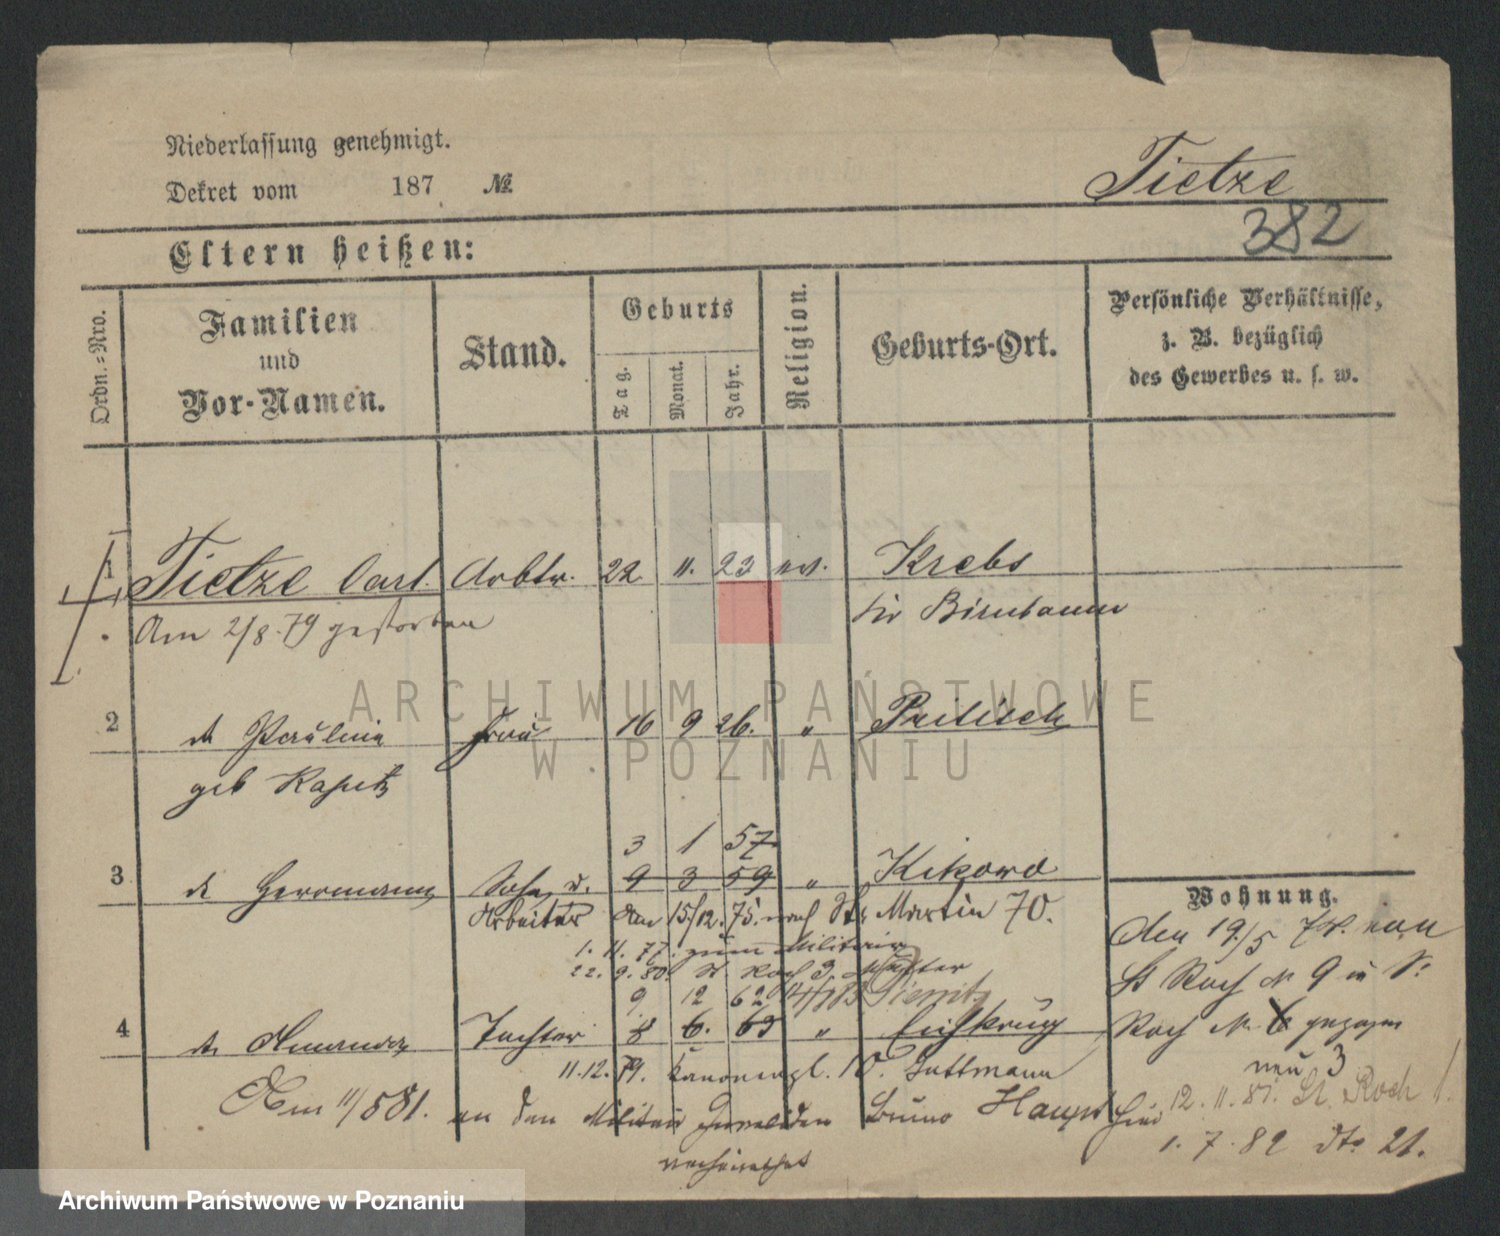 Niederlassung genehmigt.
Dekret vom 187 №
Tietze
382
Eltern heißen:
Ordn.-Nro.
Familien
und
Vor-Namen.
Stand.
Geburts
Tag.
Monat.
Jahr.
Religion.
Geburts-Ort.
Persönliche Verhältnisse,
z. B. bezüglich
des Gewerbes u. s. w.
1 Tietze Carl. Arbtr. 22 11. 23 ev. Krebs
Am 2/8.79 gestorben
Birnbaum
2 Pauline Frau 16 9 26. " Pritisch
geb
3 1 57
3 Herrmann Sohn, u. 9 3 59 "
Arbeiter am 15/12. 75. nach St. Martin 70.
1. 11. 77. zum Militair
22. 9. 80. St Roch 3.
9 12 62
4 Tochter 8 6. 63 "
11.12.79. Kanonenpl. 10. Guttmann
Am 11/5 81. an den Militär Invaliden Bruno Haupt
verheirathet
Wohnung.
den 19./5
St Roch № 9 u St
Roch № 6 gezogen
neu 3
12. 11. 81. St. Roch 1.
1. 7. 82 dto 21.
ARCHIWUM PAŃSTWOWE
W POZNANIU
Archiwum Państwowe w Poznaniu